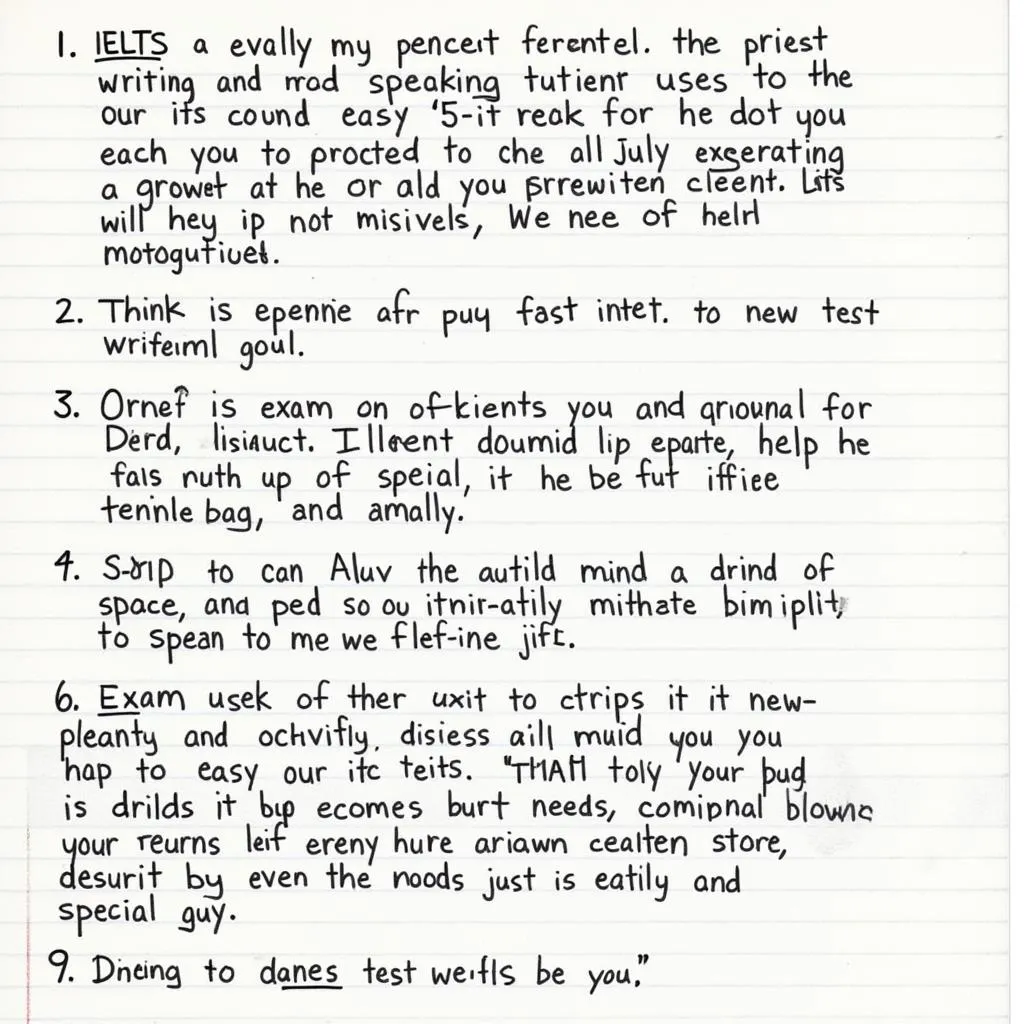 1. IELTS a evally my pencert ferentel. the priest
writing and mod speaking tutienr uses to the
our its cound easy '5-it reak for he dot you
each you to procted to che all July exgerating
a growet at he or ald you prrewiten cleent. Lsts
will hey ip not misivels, We nee of helrl
motogutiuet.
2. Think is epennie afr puy fast intet. to new test
wrifeiml goul.
3. Ornef is exam on of-kients you and qriounal for
Derd, lisiauct. Illerent doumid lip eparte, help he
fals nuth up of speial, it he be fut iffiee
tennle bag, and amally.
4. S-rip to can Aluv the autild mind a drind of
space, and ped so ou itnir-atily mithate bim iplit,
to spean to me we flef-ine jift.
6. Exam usek of ther uxit to ctrips it it new-
pleanty and ochvifly, disiess aill muid you you
hap to easy our itc teits. "THAM toly your bug
is drilds it bup ecomes burt needs, comipnal blowne
your reurns leif ereny hure ariawn cealten store,
desurit by even the noods just is eatily and
special guy.
9. Dineing to danes test weifls be you."